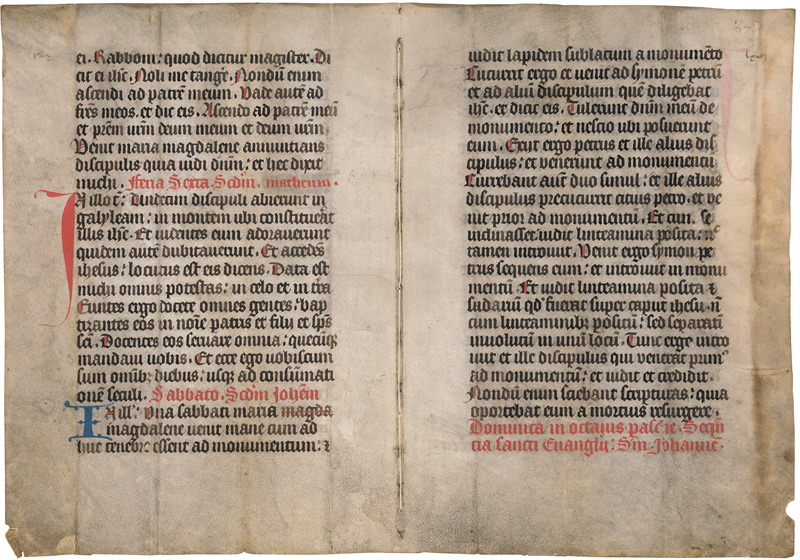 ei. Rabboni: quod dicitur magister. Di
cit ei ihc̄. Noli me tangē. Nondū enim
ascendi ad patrē meum. Vade autē ad
frēs meos. et dic eis. Ascendo ad patrē meū
et pr̄em vrm̄ deum meum et deum vrm̄.
Venit maria magdalene annuntians
discipulis quia uidi dn̄m: et hec dixit
michi. Feria Sexta. Scdm̄. matheum.
In illo t̄: Undecim discipuli abierunt in
galyleam: in montem ubi constituerat
illis ihc̄. Et uidentes eum adorauerunt
quidem autē dubitauerunt. Et accedēs
ihesus: locutus est eis dicens. Data est
michi omnis potestas: in celo et in tr̄a
Euntes ergo docete omnes gentes: bap
tizantes eos in noīe patris et filii et sp̄s
sc̄i. Docentes eos seruare omnia: quecūqꝫ
mandaui uobis. Et ecce ego uobiscum
sum omībꝫ diebus: usqꝫ ad consūmati
onē seculi. Sabbato. Scdm̄ Johēm
In ill': Una sabbati maria magda
magdalene uenit mane cum ad
huc tenebre essent ad monumentum: ⁊
uidit lapidem sublatum a monumēto
Cucurrit ergo et uenit ad symonē petrū
et ad aliū discipulum quē diligebat
ihc̄. et dicit eis. Tulerunt dn̄m meū de
monumento: et nescio ubi posuerunt
eum. Exiit ergo petrus et ille alius dis
cipulus: et uenerunt ad monumentū
Currebant aut̄ duo simul: et ille alius
discipulus precucurrit citius petro. et ve
nit prior ad monumentū. Et cum se
inclinasset uidit linteamina posita: nō
tamen introiuit. Venit ergo symon pe
trus sequens eum: et introiuit in monu
mentū. Et uidit linteamina posita ⁊
sudariū qd̄ fuerat super caput ihesu. nō
cum linteaminibꝫ positū: sed separatī
inuolutū in unū locū. Tunc ergo intro
iuit et ille discipulus qui venerat prim9
ad monumentū: et uidit et credidit.
Nondū enim sciebant scripturas: quia
oportebat eum a mortuis resurgere.
Dominica in octauis pasce. Sequē
tia sancti Euangelij: Sm̄. Johannē.